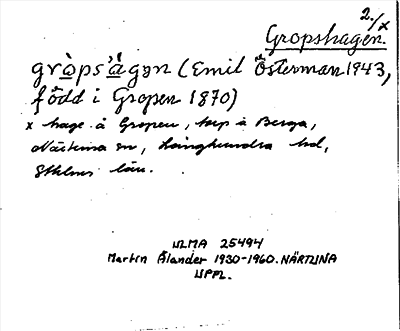 2./x
Gropshagen.
gròps`ágən (Emil Österman 1943,
född i Gropen 1870)
x hage å Gropen, torp å Berga,
Närtuna sn, Långhundra hd,
Sthlms län.
ULMA 25494
Martin Ålander 1930-1960. NÄRTUNA
UPPL.